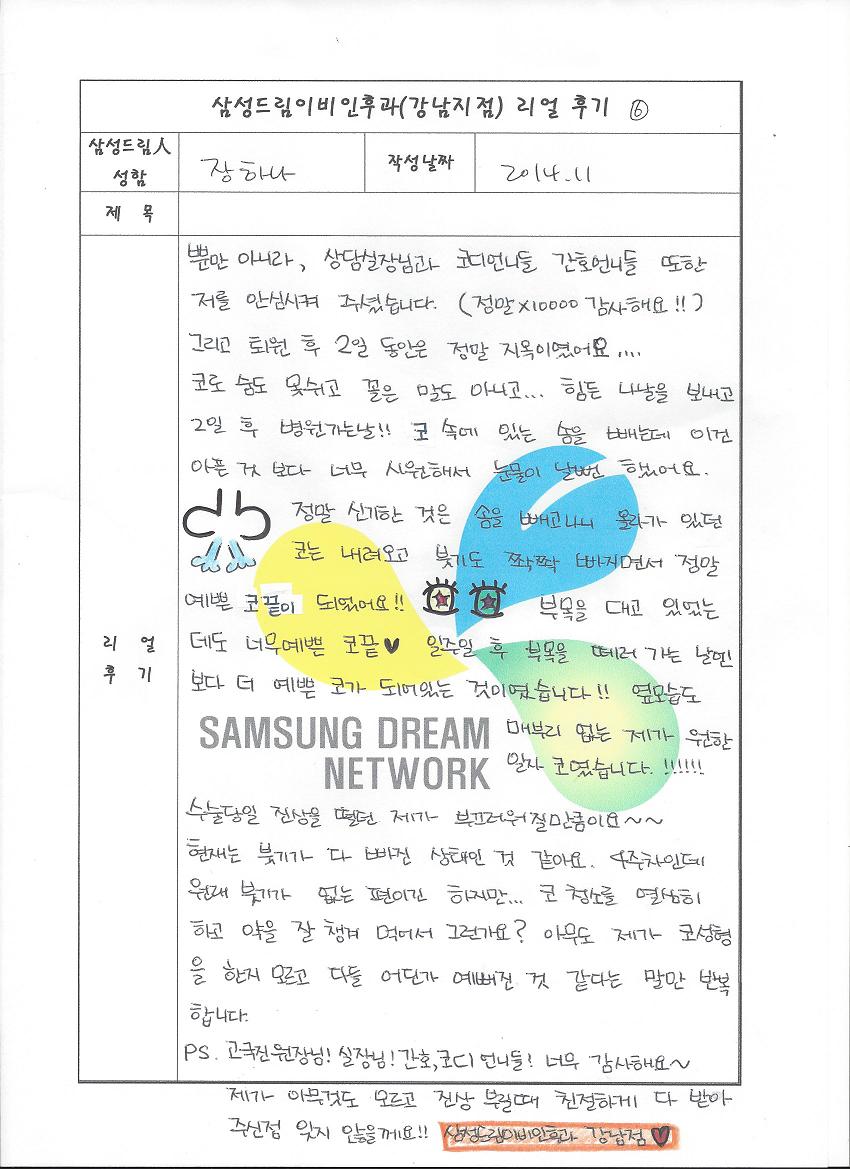 삼성드림이비인후과(강남지점) 리얼 후기 ⑥
삼성드림人 성함
장하나
작성날짜
2014.11
제 목
리 얼 후 기
뿐만 아니라, 상담실장님과 코디언니들 간호언니들 또한
저를 안심시켜 주셨습니다. (정말x10000 감사해요!!)
그리고 퇴원 후 2일 동안은 정말 지옥이였어요....
코로 숨도 못쉬고 꼴은 말도 아니고... 힘든 나날을 보내고
2일 후 병원가는날!! 코 속에 있는 솜을 빼는데 이건
아픈 것 보다 너무 시원해서 눈물이 날뻔 했었어요.
정말 신기한 것은 솜을 빼고나니 올라가 있던
코는 내려오고 붓기도 쫙쫙 빠지면서 정말
예쁜 코끝이 되었어요!! 부목을 대고 있었는
데도 너무예쁜 코끝♥ 일주일 후 부목을 떼러 가는 날엔
보다 더 예쁜 코가 되어있는 것이였습니다!! 옆모습도
매부리 없는 제가 원한
일자 코였습니다.!!!!!!
SAMSUNG DREAM
NETWORK
수술당일 진상을 떨던 제가 부끄러워질만큼이요~~
현재는 붓기가 다 빠진 상태인 것 같아요. 4주차인데
원래 붓기가 없는 편이긴 하지만... 코 청소를 열심히
하고 약을 잘 챙겨 먹어서 그런가요? 아무도 제가 코성형
을 한지 모르고 다들 어딘가 예뻐진 것 같다는 말만 반복
합니다.
PS. 고국진원장님! 실장님! 간호,코디 언니들! 너무 감사해요~
제가 아무것도 모르고 진상 부릴때 친절하게 다 받아
주신점 잊지 않을께요!! 삼성드림이비인후과 강남점♥